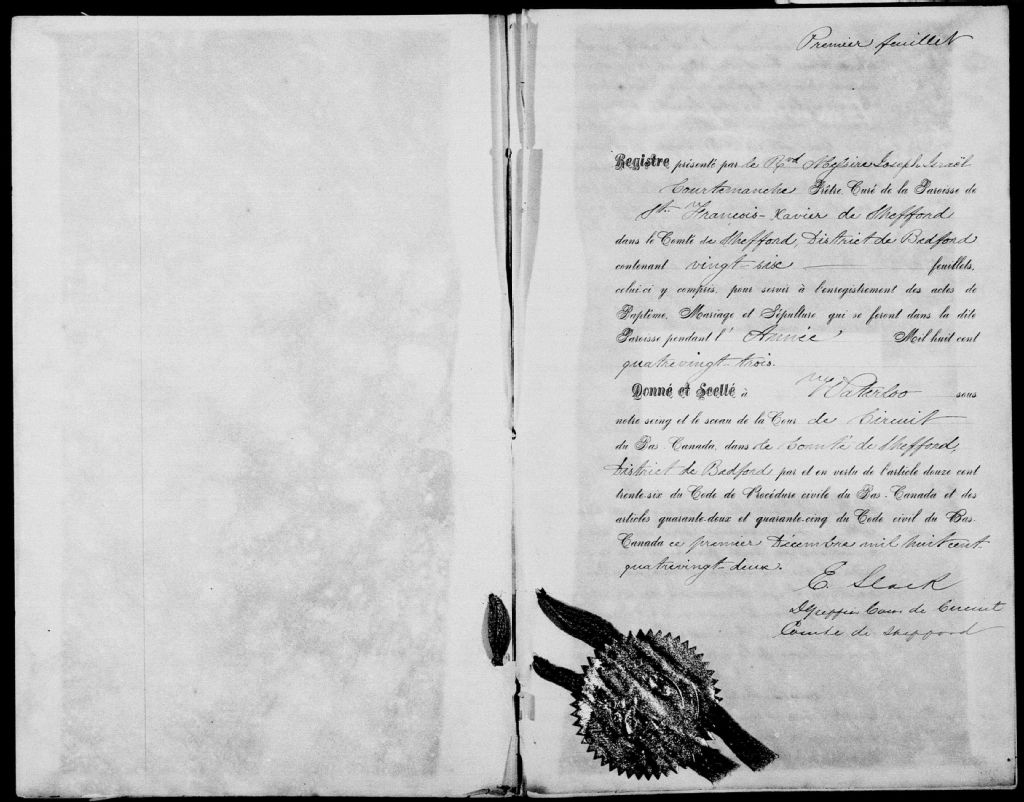 Premier feuillet
Registre présenté par le Rvd Messire Joseph Israël
Courtemanche Prêtre, Curé de la Paroisse de
St. François-Xavier de Shefford
dans le Comté de Shefford, District de Bedford
contenant vingt-six feuillets,
celui-ci y compris, pour servir à l'enregistrement des actes de
Baptême, Mariage et Sépulture qui se feront dans la dite
Paroisse pendant l'Année Mil huit cent
quatrevingt-trois.
Donné et Scellé à Waterloo sous
notre seing et le sceau de la Cour de Circuit
du Bas-Canada, dans le Comté de Shefford,
District de Bedford par et en vertu de l'article douze cent
trente-six du Code de Procédure civile du Bas-Canada et des
articles quarante-deux et quarante-cinq du Code civil du Bas-
Canada ce premier Décembre mil huit cent
quatrevingt-deux.
E. Slack
Cour de Circuit
Comté de Shefford